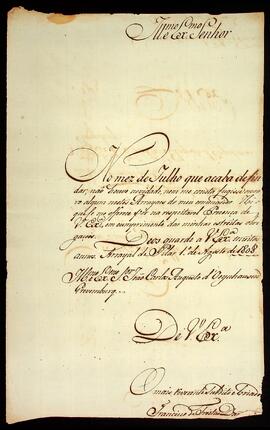 Illmo e Exmo Senhor
No mez de Julho que acaba de fin
dar, não houve novidade, nem me consta
algum nestes Arrayaes de meu commando
na respeitavel Prezença de
V. Exa em cumprimento das minhas estreitas obri
gaçoens.
Deos guarde a V. Exa muitos
annos. Arrayal do Pilar 1º de Agosto de 1808
Illmo e Exmo Snr João Carlos Augusto d'Oeynhausen
Grevemburg
De V. Exa
O mais reverente Subdito e Criado
Francisco